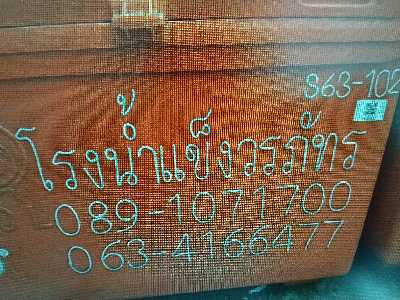 S63-102
โรงน้ำแข็งวรภัทร
089-1071700
063-4166477